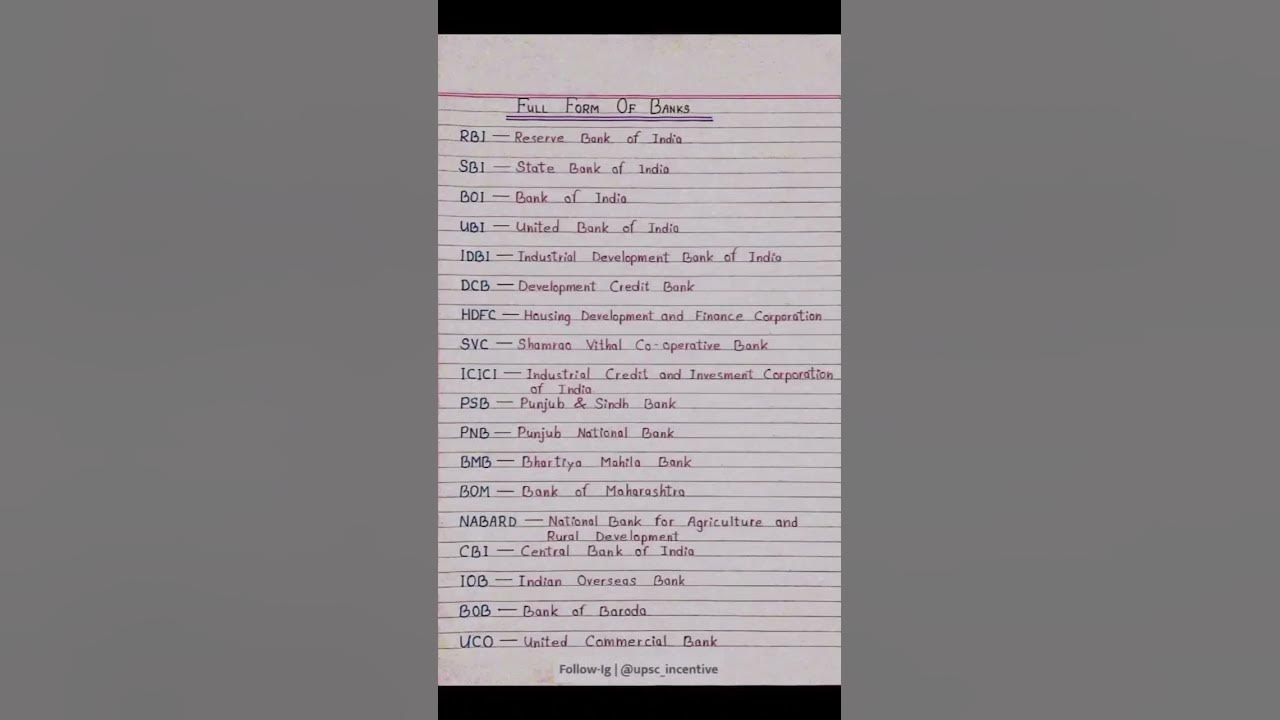 FULL FORM OF BANKS
RBI — Reserve Bank of India
SBI — State Bank of India
BOI — Bank of India
UBI — United Bank of India
IDBI — Industrial Development Bank of India
DCB — Development Credit Bank
HDFC — Housing Development and Finance Corporation
SVC — Shamrao Vithal Co-operative Bank
ICICI — Industrial Credit and Invesment Corporation
of India
PSB — Punjub & Sindh Bank
PNB — Punjub National Bank
BMB — Bhartiya Mahila Bank
BOM — Bank of Maharashtra
NABARD — National Bank for Agriculture and
Rural Development
CBI — Central Bank of India
IOB — Indian Overseas Bank
BOB — Bank of Baroda
UCO — United Commercial Bank
Follow-Ig | @upsc_incentive